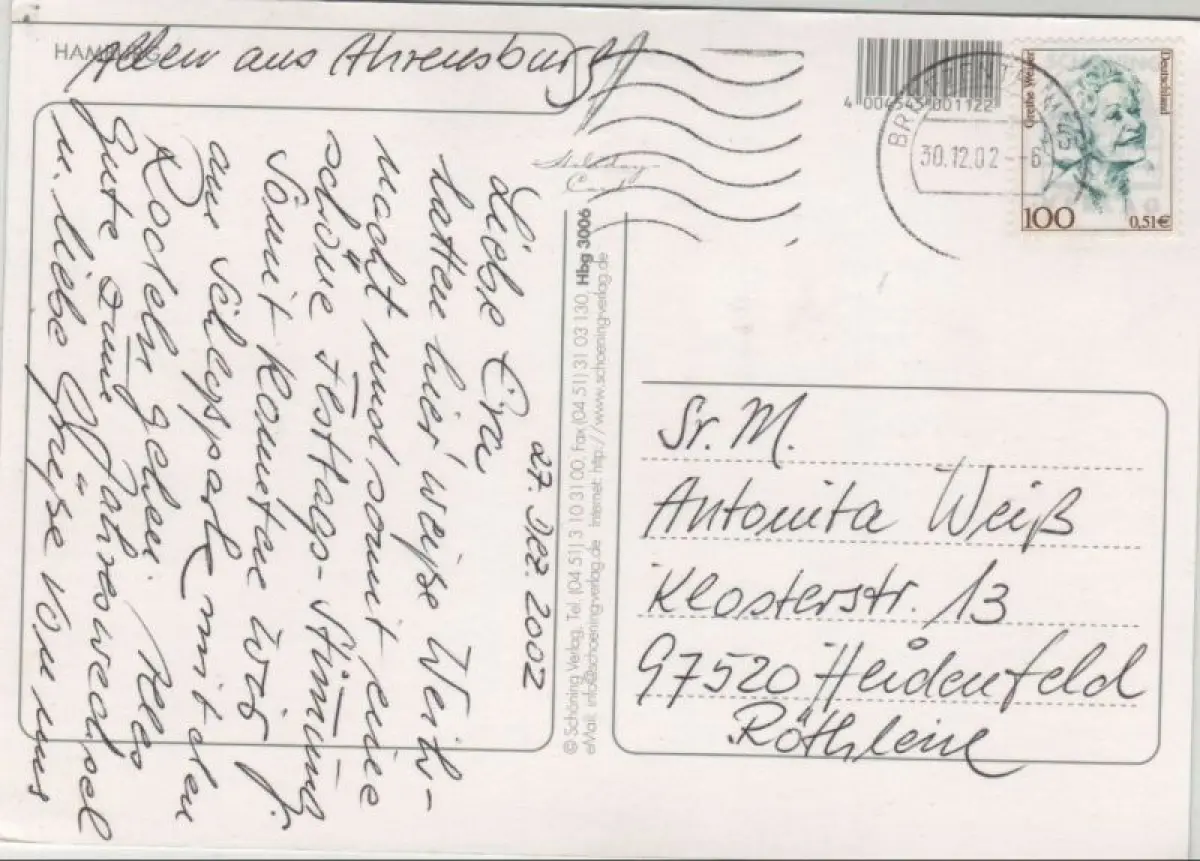 HAMBURG
27. Dez. 2002
Liebe
hatten hier weiße Weih-
nacht und somit eine
schöne Festtags-Stimmung
Somit konnten wir
am Schloßpark mit den
Rodeln gehen. Alles
Gute zum Jahreswechsel
u. liebe Grüße von uns
allen aus Ahrensburg
4 004545 001122
30.12.02 - 6
Grethe Weiser
Deutschland
100 0,51€
© Schöning Verlag, Tel. (04 51) 3 10 31 00, Fax (04 51) 31 03 130, Hbg 3006
eMail: info@schoeningverlag.de Internet: http://www.schoeningverlag.de
Sr. M.
Antonita Weiß
Klosterstr. 13
97520 Heidenfeld
Röthlein